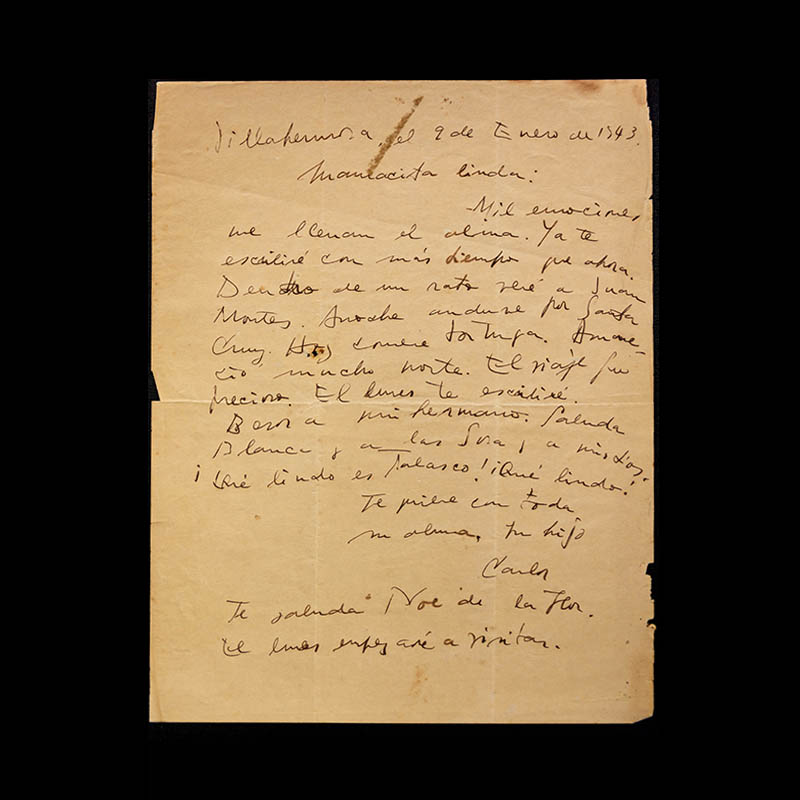 Villahermosa, el 9 de Enero de 1943.
Mamacita linda:
Mil emociones
me llenan el alma. Ya te
escribiré con más tiempo que ahora.
Dentro de un rato veré a Juan
Montes. Anoche anduve por Santa
Cruz. Hoy comeré tortuga. Amane-
ció mucho norte. El viaje fue
precioso. El lunes te escribiré.
Besos a mi hermano. Saluda
Blanca y a las y a mis tíos.
¡Qué lindo es Tabasco! ¡Qué lindo!
Te quiere con toda
su alma, tu hijo
Carlos
Te saluda Noé de la Flor.
El lunes empezaré a visitar.